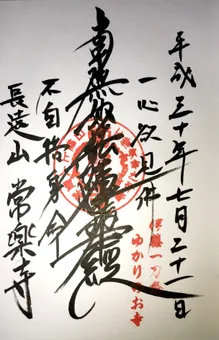 平成三十年七月二十一日
一心欲見佛
南無妙法蓮華経
不自惜身命
長遠山 常楽寺
伊藤一刀斎
ゆかりのお寺